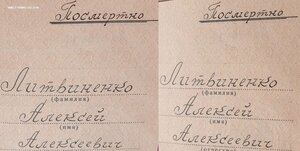 Посмертно
Литвиненко
(фамилия)
Алексей
(имя)
Алексеевич
Посмертно
Литвиненко
(фамилия)
Алексей
(имя)
Алексеевич